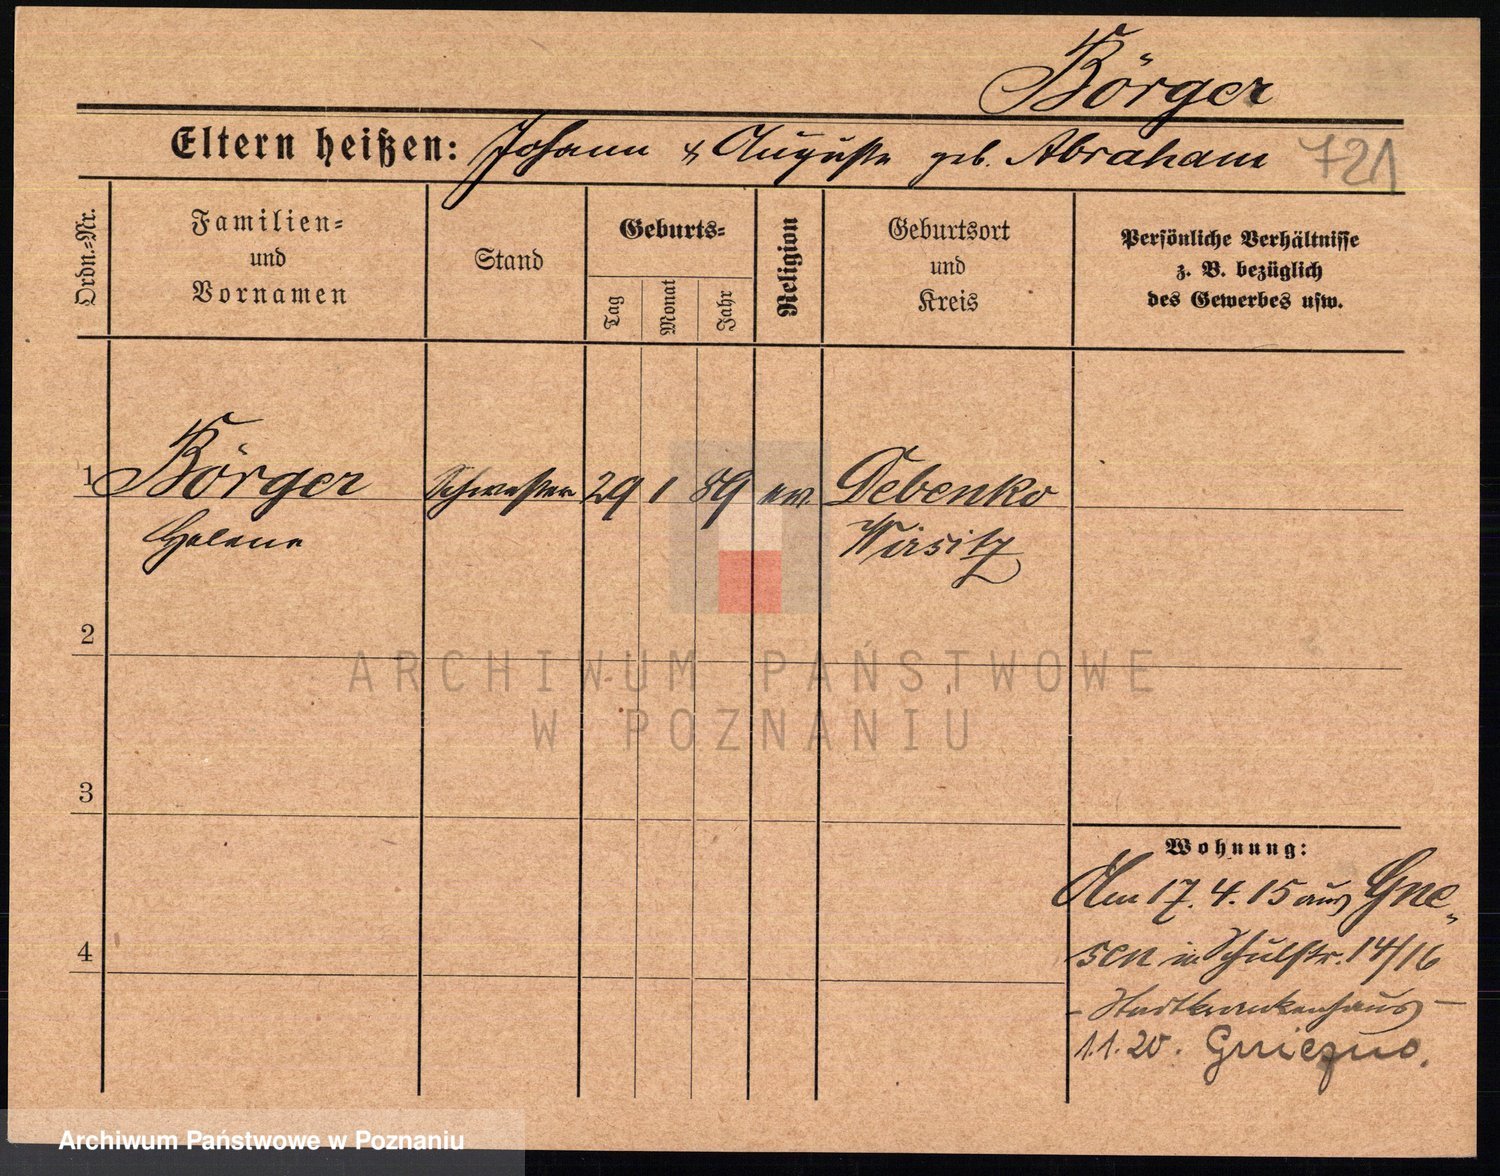 Börger
Eltern heißen: Johann & Auguste geb. Abraham 721
Ordn.=Nr.
Familien=
und
Vornamen
Stand
Geburts=
Tag
Monat
Jahr
Religion
Geburtsort
und
Kreis
Persönliche Verhältnisse
z. B. bezüglich
des Gewerbes usw.
1 Börger Schwester 29 1 89 ev. Debenke
Helene Wirsitz
2
3
4
ARCHIWUM PAŃSTWOWE
W POZNANIU
Wohnung:
Am 17. 4. 15 aus Gne„
sen in Schulstr. 14/16
- Stadtkrankenhaus -
1.1.20. Gniezno.
Archiwum Państwowe w Poznaniu